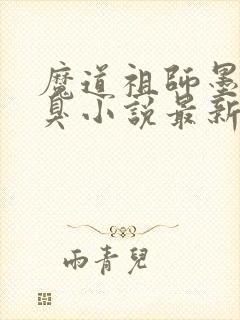 魔道祖師墨
臭小說最新
雨青兒